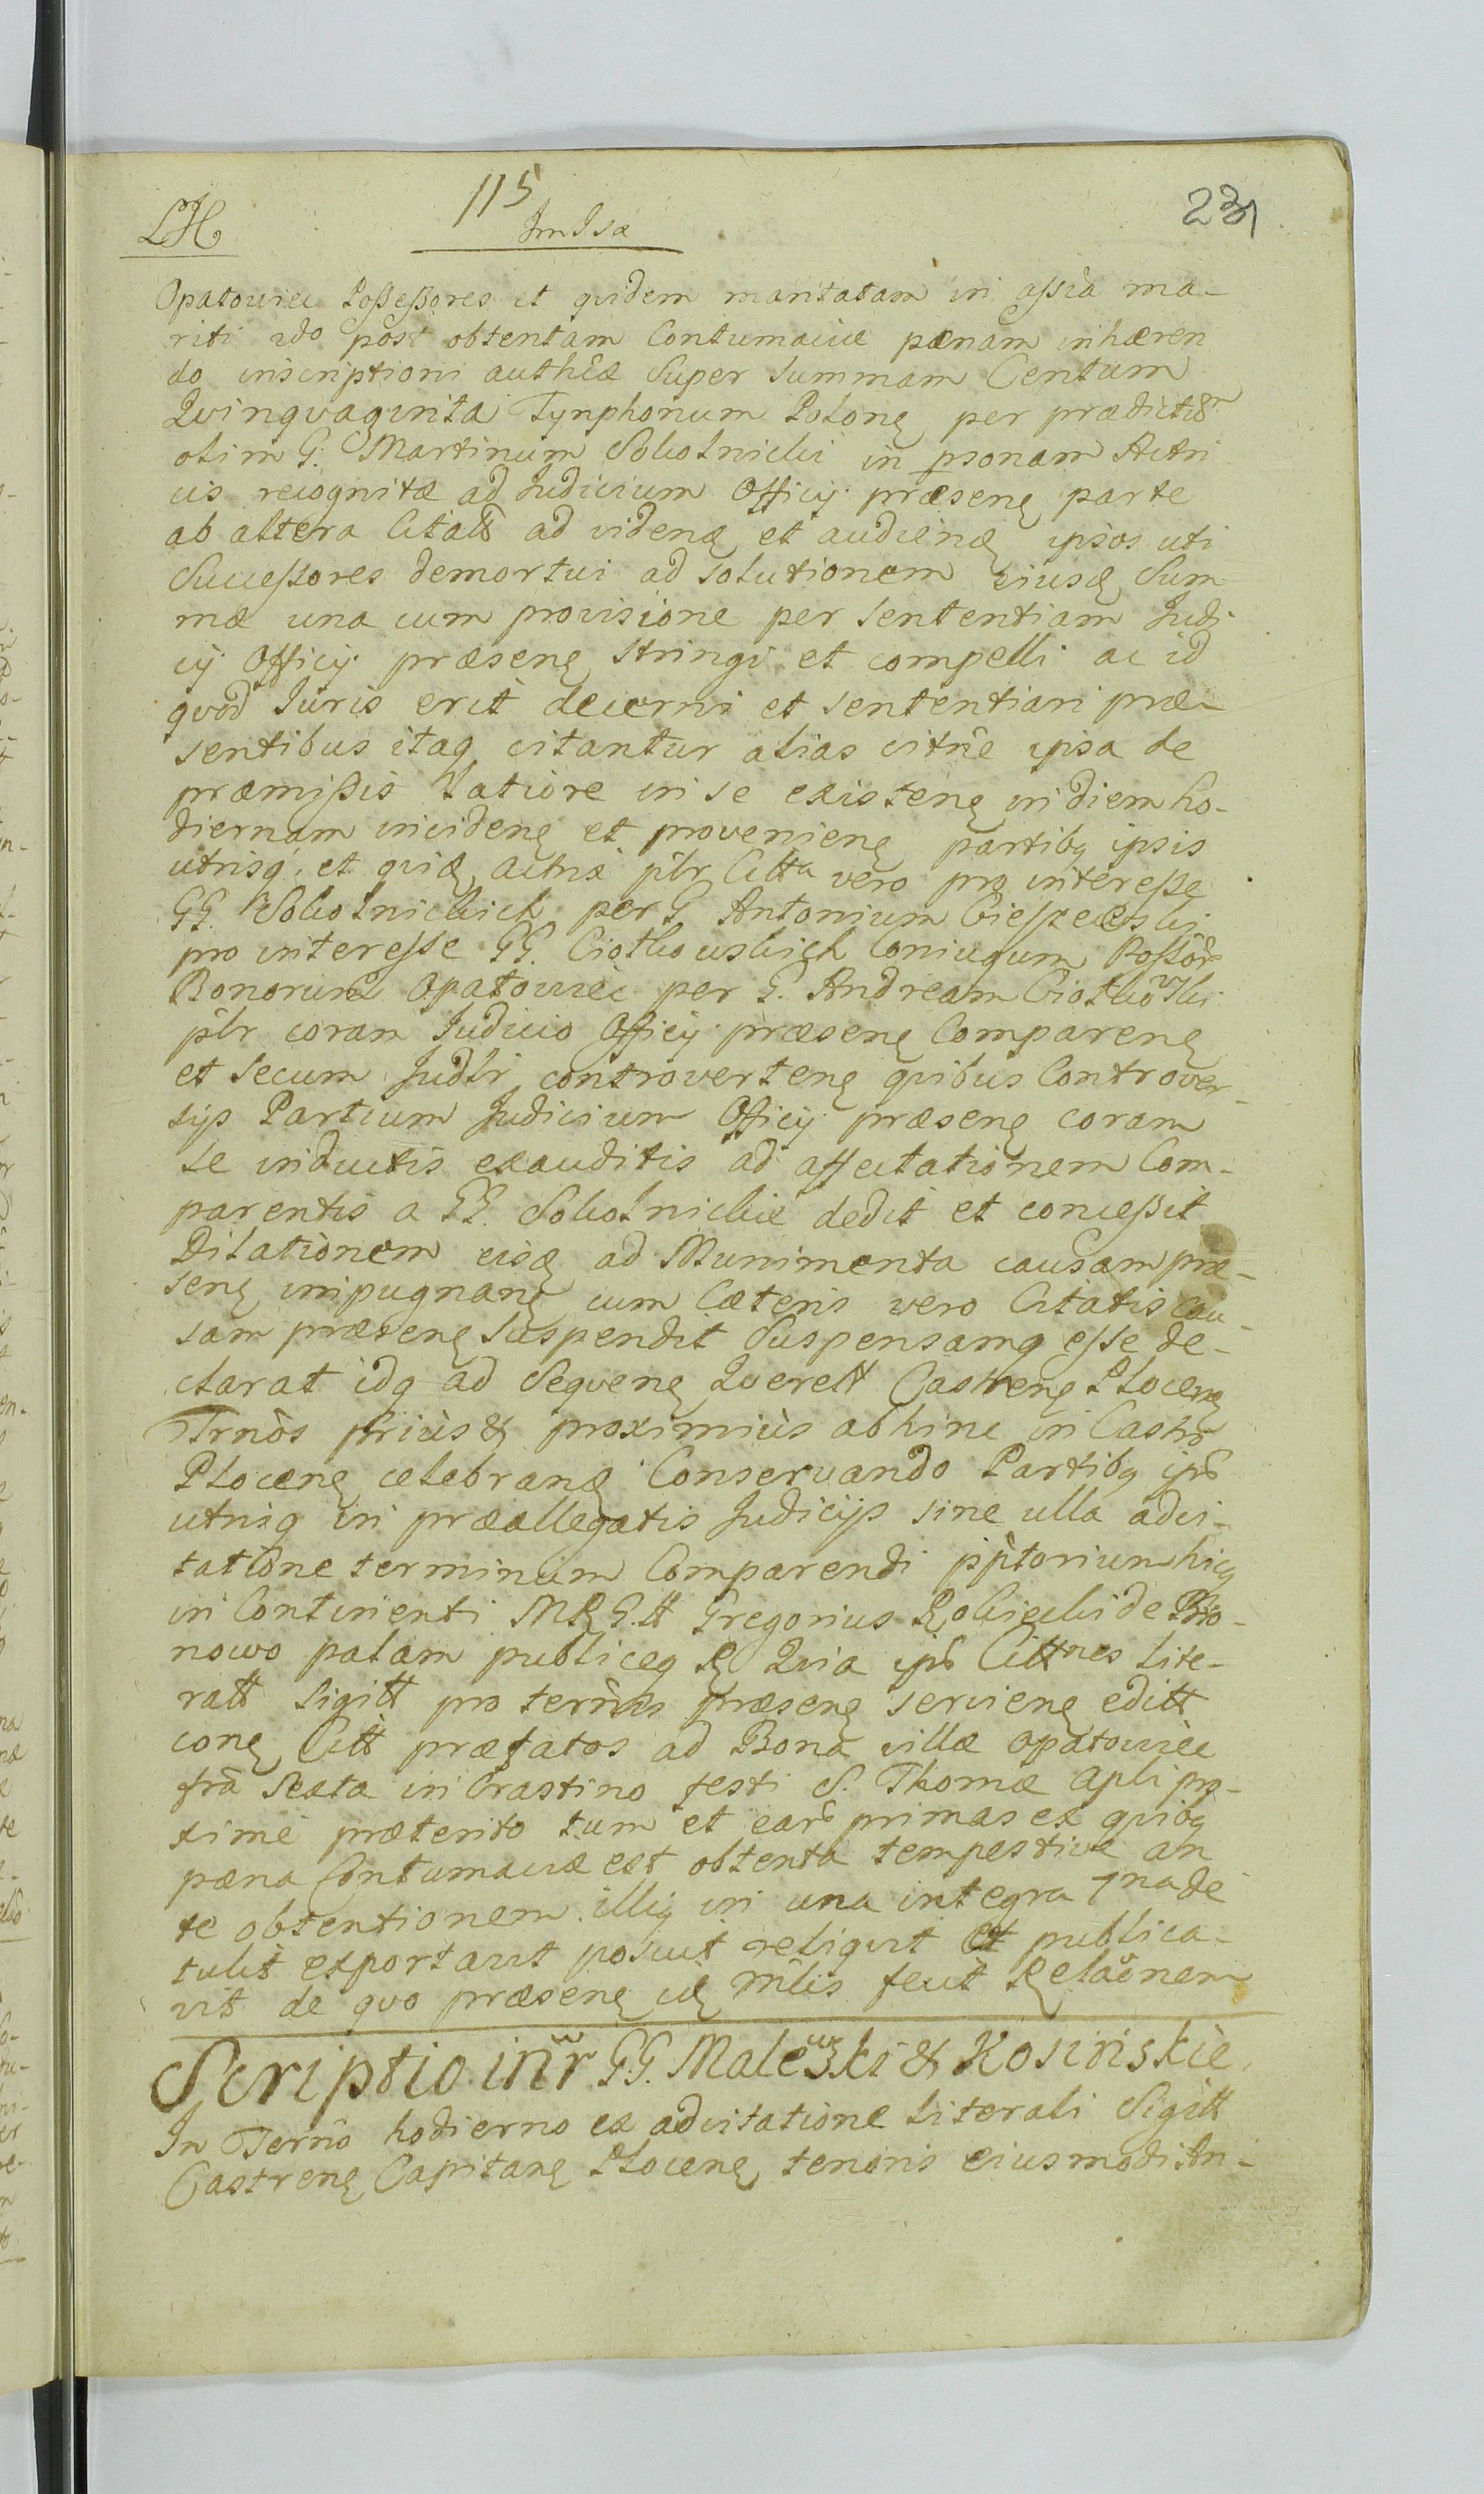 115
231
LH
Opatowiec Possessores et quidem maritatam in assia ma-
riti 2do post obtentam Contumaciæ pænam inhæren
do inscriptioni authcæ Super Summam Centum
Quinquaginta Tynphonum Polonę per prædict
olim G. Martinum Sokolnicki in psonam Actri
cis recognitæ ad Judicium Officÿ præsenę parte
ab altera Citatt ad videnę et audienę ipsos uti
Successores demortui ad solutionem eiusę Sum
mæ una cum provisione per Sententiam Judi
cÿ Officÿ præsenę stringi et compelli ac id
quod Juris erit decerni et sententiari præ-
sentibus itaq citantur alias citne ipsa de
præmissis latiore in se existenę in diem ho-
diernam incidenę et provenienę partibq ipsis
utrisq, et quię actrix plr Citta vero pro interesse
GG. Sokolnickich per G Antonium
pro interesse GG. Ciotkowskich Coniugum Possor
Bonorum Opatowiec per G. Andream Ciotkowski
plr coram Judicio Officÿ præsenę Comparenę
et secum Judlr controvertenę quibus Controver-
sÿs Partium Judicium Officÿ præsenę coram
se inductis exauditis ad affectationem Com-
parentis a GG. Sokolnickie dedit et concessit
Dilationem eisę ad Munimenta causam præ-
senę impugnanę cum Cæteris vero Citatis Cau-
sam præsenę suspendit Suspensamq esse de-
clarat idq ad Sequenę Querell Castrenę Plocenę
Trnos priusę proximius abhinc in Castro
Plocenę celebranę Conservando Partibq ips
utrisq in præallegatis Judicÿs sine ulla adci-
tatione terminum Comparendi pptorium hicq
in Continenti MRGtt Gregorius Rokicki de
nowo palam publiceq Rę Quia ips Cittnes lite-
ratt Sigitt pro ternis præsenę servienę editt
conę Citt præfatos ad Bona villæ Opatowiec
fra Sexta in Crastino festi S. Thomæ Apli pro-
xime præterito tum et ears primas ex quibq
pæna Contumaciæ est obtenta tempestive an
te obtentionem illiq in una integra 7nade
tulit exportavit posuit reliquit et publica-
vit de quo præsenę idę Mlis fecit Relãonem
Scriptio inr GG. Malewski & Kosinskie
In Terno hodierno ex adcitatione literali Sigitt
Castrenę Capitanę Plocenę tenoris eiusmodi An-